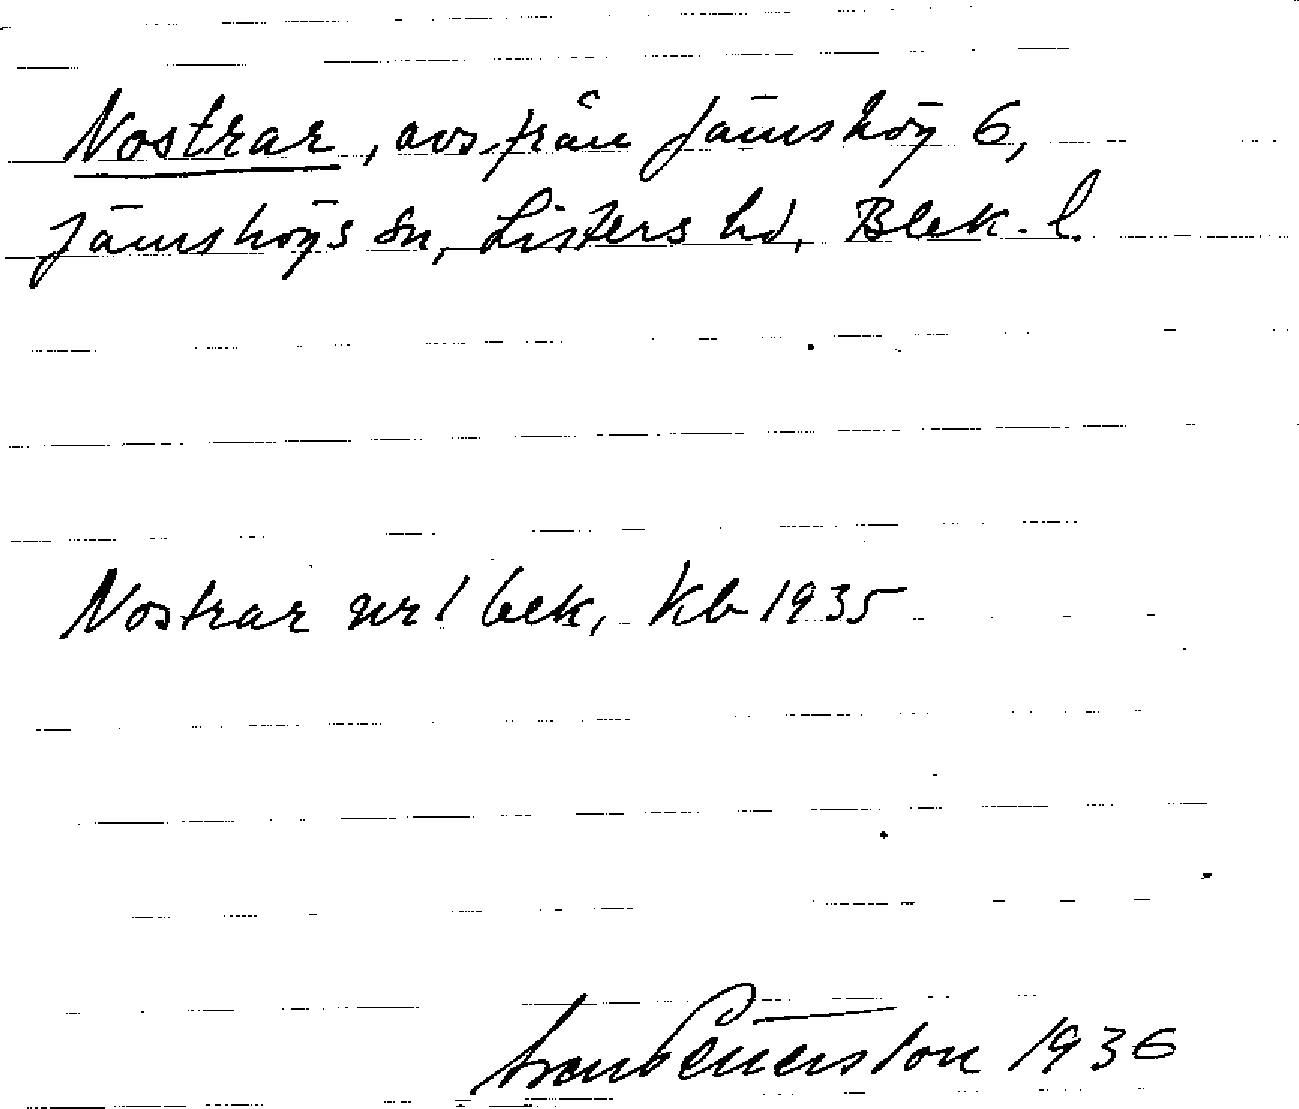 Nostrar, avs. från Jämshög 6,
Jämshögs sn, Listers hd, Blek. l.
Nostrar nr 1 bek, kb 1935
1936